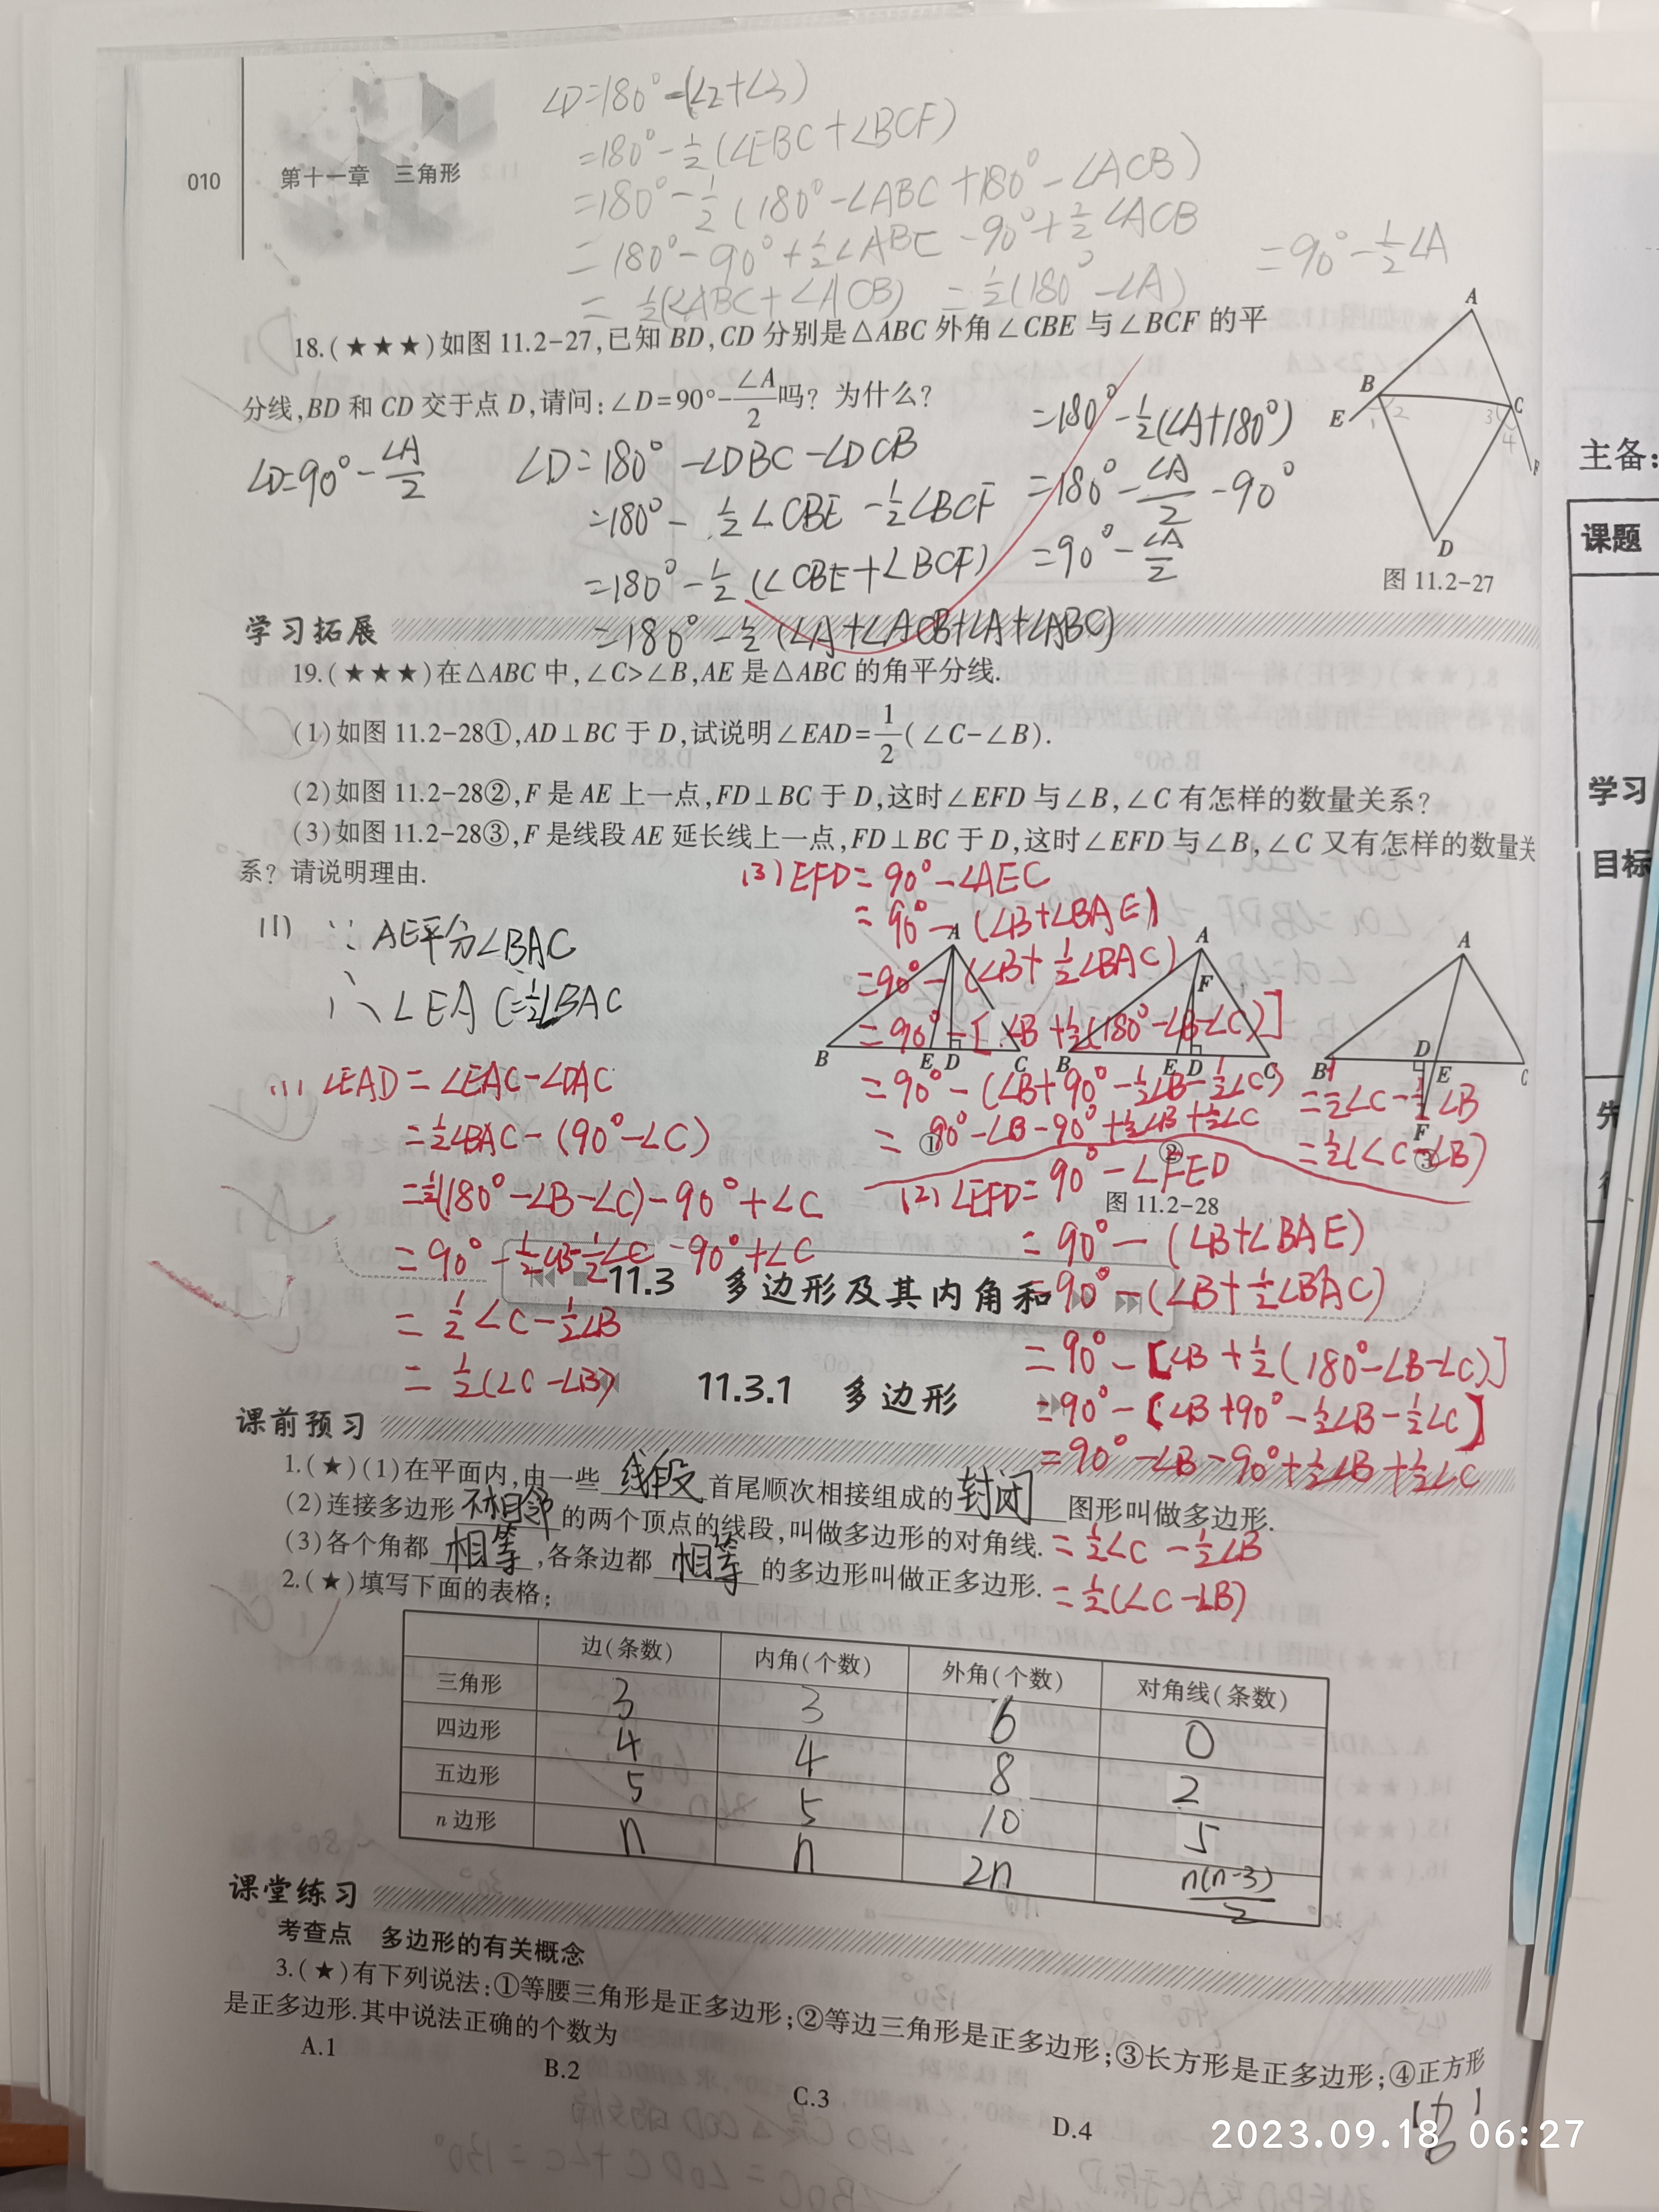 ∠D=180°-(∠2+∠3)
=180°-½(∠EBC+∠BCF)
=180°-½(180°-∠ABC+180°-∠ACB)
=180°-90°+½∠ABC-90°+½∠ACB
=½(∠ABC+∠ACB) =½(180°-∠A)
=90°-½∠A
010 第十一章 三角形
18.(★★★)如图11.2-27,已知BD,CD分别是△ABC外角∠CBE与∠BCF的平
分线,BD和CD交于点D,请问:∠D=90°-∠A/2吗? 为什么?
∠D=90°-∠A/2
∠D=180°-∠DBC-∠DCB
=180°-½∠CBE-½∠BCF
=180°-½(∠CBE+∠BCF)
=180°-½(∠A+∠ACB+∠A+∠ABC)
=180°-½(∠A+180°)
=180°-∠A/2-90°
=90°-∠A/2
A
B
E
1
2
3
C
4
F
D
图11.2-27
学习拓展
19.(★★★)在△ABC中,∠C>∠B,AE是△ABC的角平分线.
(1)如图11.2-28①,AD⊥BC于D,试说明∠EAD=1/2(∠C-∠B).
(2)如图11.2-28②,F是AE上一点,FD⊥BC于D,这时∠EFD与∠B,∠C有怎样的数量关系?
(3)如图11.2-28③,F是线段AE延长线上一点,FD⊥BC于D,这时∠EFD与∠B,∠C又有怎样的数量关
系? 请说明理由.
(1) ∵AE平分∠BAC
∴∠EAC=½∠BAC
(1) ∠EAD=∠EAC-∠DAC
=½∠BAC-(90°-∠C)
=½(180°-∠B-∠C)-90°+∠C
=90°-½∠B-½∠C-90°+∠C
=½∠C-½∠B
=½(∠C-∠B)
(3) EFD=90°-∠AEC
=90°-(∠B+∠BAE)
=90°-(∠B+½∠BAC)
=90°-[∠B+½(180°-∠B-∠C)]
=90°-(∠B+90°-½∠B-½∠C)
=90°-∠B-90°+½∠B+½∠C
=½∠C-½∠B
=½(∠C-∠B)
A
B E D C
①
A
F
B E D C
②
A
B D E C
F
③
图11.2-28
(2) ∠EFD=90°-∠FED
=90°-(∠B+∠BAE)
=90°-(∠B+½∠BAC)
=90°-[∠B+½(180°-∠B-∠C)]
=90°-[∠B+90°-½∠B-½∠C]
=90°-∠B-90°+½∠B+½∠C
=½∠C-½∠B
=½(∠C-∠B)
11.3 多边形及其内角和
11.3.1 多边形
课前预习
1.(★)(1)在平面内,由一些 线段 首尾顺次相接组成的 封闭 图形叫做多边形.
(2)连接多边形 不相邻 的两个顶点的线段,叫做多边形的对角线.
(3)各个角都 相等 ,各条边都 相等 的多边形叫做正多边形.
2.(★)填写下面的表格:
边(条数) 内角(个数) 外角(个数) 对角线(条数)
三角形 3 3 6 0
四边形 4 4 8 2
五边形 5 5 10 5
n边形 n n 2n n(n-3)/2
课堂练习
考查点 多边形的有关概念
3.(★)有下列说法:①等腰三角形是正多边形;②等边三角形是正多边形;③长方形是正多边形;④正方形
是正多边形.其中说法正确的个数为
【B】
A.1 B.2 C.3 D.4
主备:
课题
学习
目标
先
2023.09.18 06:27